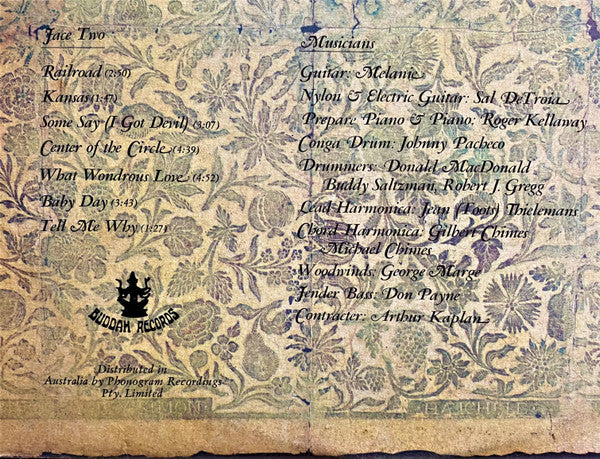 Face Two
Railroad (2:50)
Kansas (1:47)
Some Say (I Got Devil) (3:07)
Center of the Circle (4:39)
What Wondrous Love (4:52)
Baby Day (3:43)
Tell Me Why (1:27)
BUDDAH RECORDS
Distributed in
Australia by Phonogram Recordings
Pty. Limited
Musicians
Guitar: Melanie
Nylon & Electric Guitar: Sal DeTroia
Prepare Piano & Piano: Roger Kellaway
Conga Drum: Johnny Pacheco
Drummers: Donald MacDonald
Buddy Saltzman, Robert J. Gregg
Lead Harmonica: Jean (Foots) Thielemans
Chord Harmonica: Gilbert Chimes
Michael Chimes
Woodwinds: George Marge
Fender Bass: Don Payne
Contracter: Arthur Kaplan